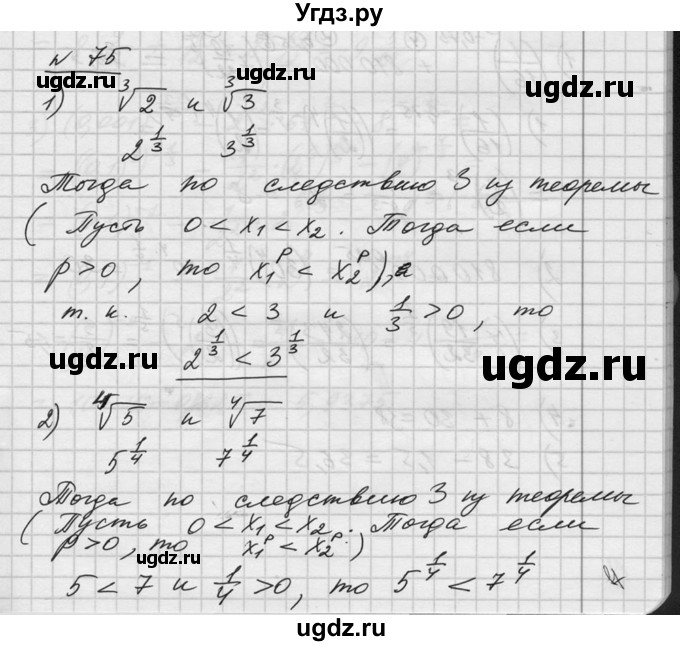 Угдз.ру
N 75
ugdz.ru ugdz.ru
1) ∛2 и ∛3
2^{1/3} 3^{1/3}
Тогда по следствию 3 из теоремы
( Пусть 0 < x₁ < x₂. Тогда если
p > 0, то x₁^p < x₂^p ), а
т. к. 2 < 3 и 1/3 > 0, то
ugdz.ru 2^{1/3} < 3^{1/3} ugdz.ru
2) ∜5 и ∜7
5^{1/4} 7^{1/4}
Тогда по следствию 3 из теоремы
( Пусть 0 < x₁ < x₂. Тогда если
p > 0, то x₁^p < x₂^p. )
5 < 7 и 1/4 > 0, то 5^{1/4} < 7^{1/4}
ugdz.ru ugdz.ru
ugdz.ru